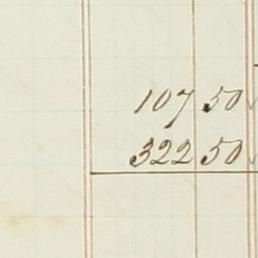 107 50
322 50